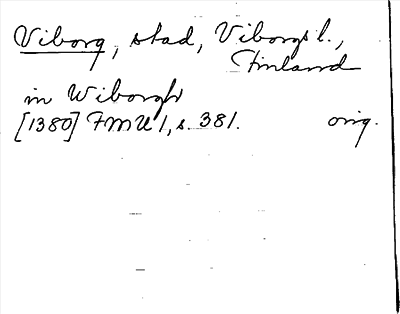 Viborg, stad, Viborgs l.,
Finland
in Wiborgh
[1380] FMU 1, s. 381. orig.